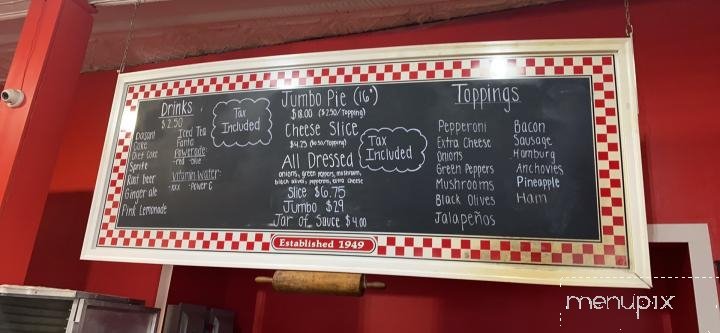 Drinks
$2.50
Dasani
Coke
Diet Coke
Sprite
Root beer
Ginger ale
Pink Lemonade
Iced Tea
Fanta
Powerade:
-red -blue
Vitamin Water:
-xxx -Power C
Tax
Included
Jumbo Pie (16")
$18.00 ($2.50/Topping)
Cheese Slice
$4.25 ($0.50/Topping)
All Dressed
onions, green peppers, mushroom,
black olives, pepperoni, extra cheese
Slice $6.75
Jumbo $29
Jar of Sauce $4.00
Tax
Included
Toppings
Pepperoni
Extra Cheese
Onions
Green Peppers
Mushrooms
Black Olives
Jalapeños
Bacon
Sausage
Hamburg
Anchovies
Pineapple
Ham
Established 1949
menupix